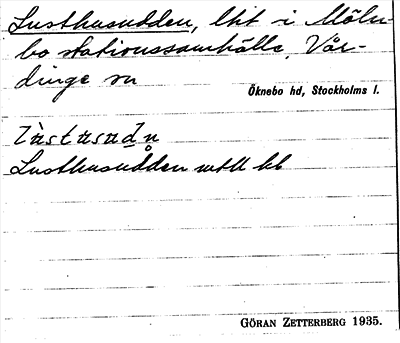 Lusthusudden, lht i Möln-
bo stationssamhälle, Vår-
dinge sn
Öknebo hd, Stockholms l.
Lusthusudden
GÖRAN ZETTERBERG 1935.